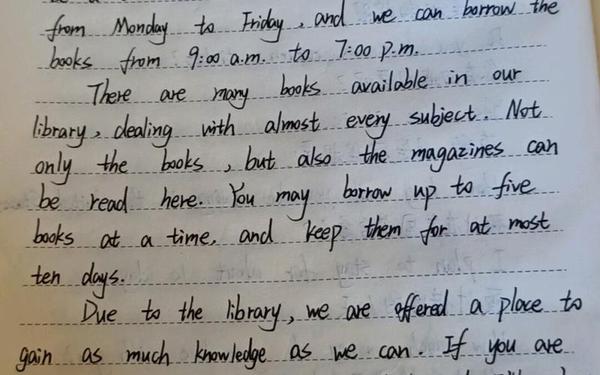 from Monday to Friday, and we can borrow the
books from 9:00 a.m. to 7:00 p.m.
There are many books available in our
library, dealing with almost every subject. Not
only the books, but also the magazines can
be read here. You may borrow up to five
books at a time, and keep them for at most
ten days.
Due to the library, we are offered a place to
gain as much knowledge as we can. If you are